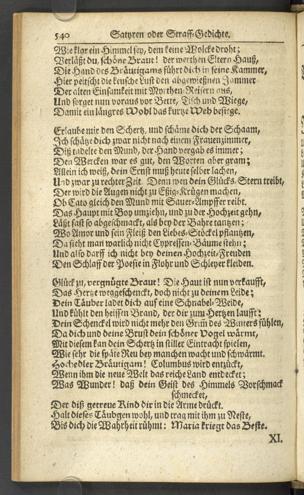 540 Satyren oder Straff-Gedichte.
Wie klar ein Himmel sey, dem keine Wolcke droht;
Verläßt du, schöne Braut! der werthen Eltern Hauß,
Die Hand des Bräutigams führt dich in seine Kammer,
Hier peitscht die keusche Lust den abgewießnen Jammer
Der alten Einsamkeit mit Myrthen-Reisern aus,
Und sorget nun voraus vor Bette, Tisch und Wiege,
Damit ein längres Wohl das kurtze Weh besiege.
Erlaube mir den Schertz, und schäme dich der Schaam,
Ich schätze dich zwar nicht nach einem Frauenzimmer,
Diß tadelt den Mund, der Hand vergab es immer;
Den Wercken war es gut, den Worten aber gram;
Allein ich weiß, dein Ernst muß heute selber lachen,
Und zwar zu rechter Zeit. Denn wen dein Glücks-Stern treibt,
Der wird die Augen nicht zu Eßig-Krügen machen,
Ob Cato gleich den Mund mit Sauer-Ampffer reibt.
Das Haupt mit Boy umziehn, und zu der Hochzeit gehn,
Läßt fast so abgeschmackt, als bey der Bahre tantzen;
Wo Amor und sein Fleiß den Liebes-Stück pflantzen,
Da sieht man warlich nicht Cypressen-Bäume stehn;
Und also darff ich nicht bey deinen Hochzeit-Freuden
Den Schlaff der Poesie in Flohr und Schleyer kleiden.
Glück zu, vergnügte Braut! Die Haut ist nun verkaufft,
Das Hertze weggeschenckt, doch nicht zu deinem Leide;
Dein Täuber ladet dich auf eine Schnabel-Weide,
Und kühlt den heissen Brand, der dir zum Hertzen laufft:
Dein Schenckel wird nicht mehr den Gruß des Winters fühlen,
Da dich und deine Brust dein schöner Vogel wärmt,
Mit diesem kan dein Schertz in stiller Eintracht spielen,
Wie sehr die späte Reu bey manchen wacht und schwärmt.
Hochedler Bräutigam! Columbus wird entzückt,
Wenn ihm die neue Welt das reiche Land entdecket;
Was Wunder! daß dein Geist des Himmels Vorschmack
schmecket,
Der diß getreue Kind dir in die Arme drückt.
Halt dieses Täubgen wohl, und trag mit ihm zu Neste,
Bis dich die Wahrheit rühmt: Maria kriegt das Beste.
XI.